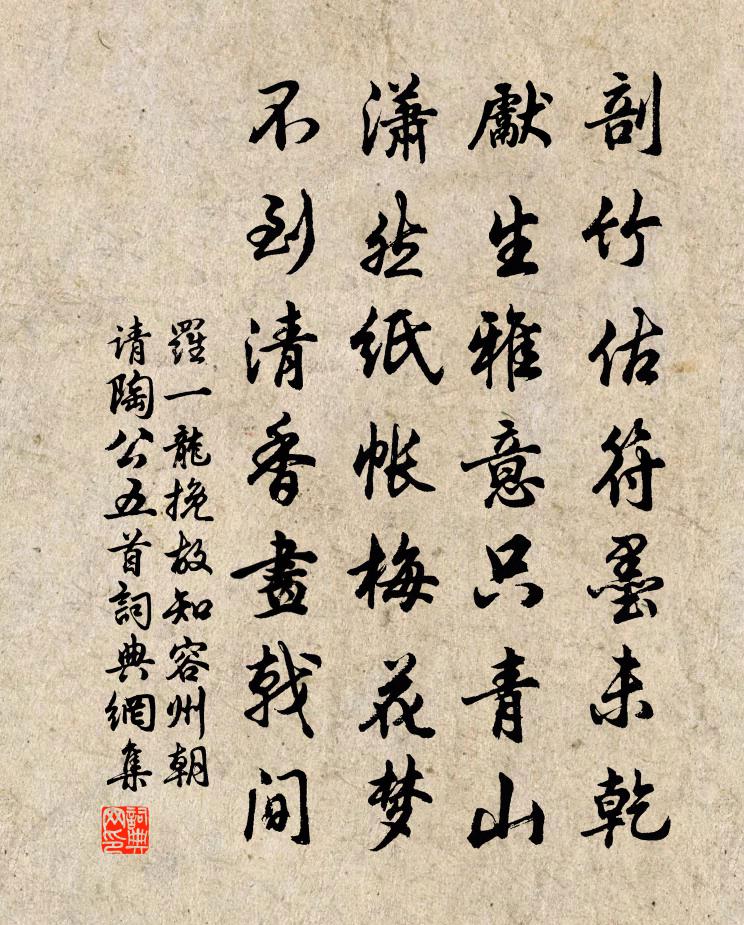 剖竹估符墨未乾
獻生雅意只青山
瀟然紙帳梅花梦
不到清香畫戟间
羅一龍挽故知容州朝
请陶公五首詞典網集
詞典网印